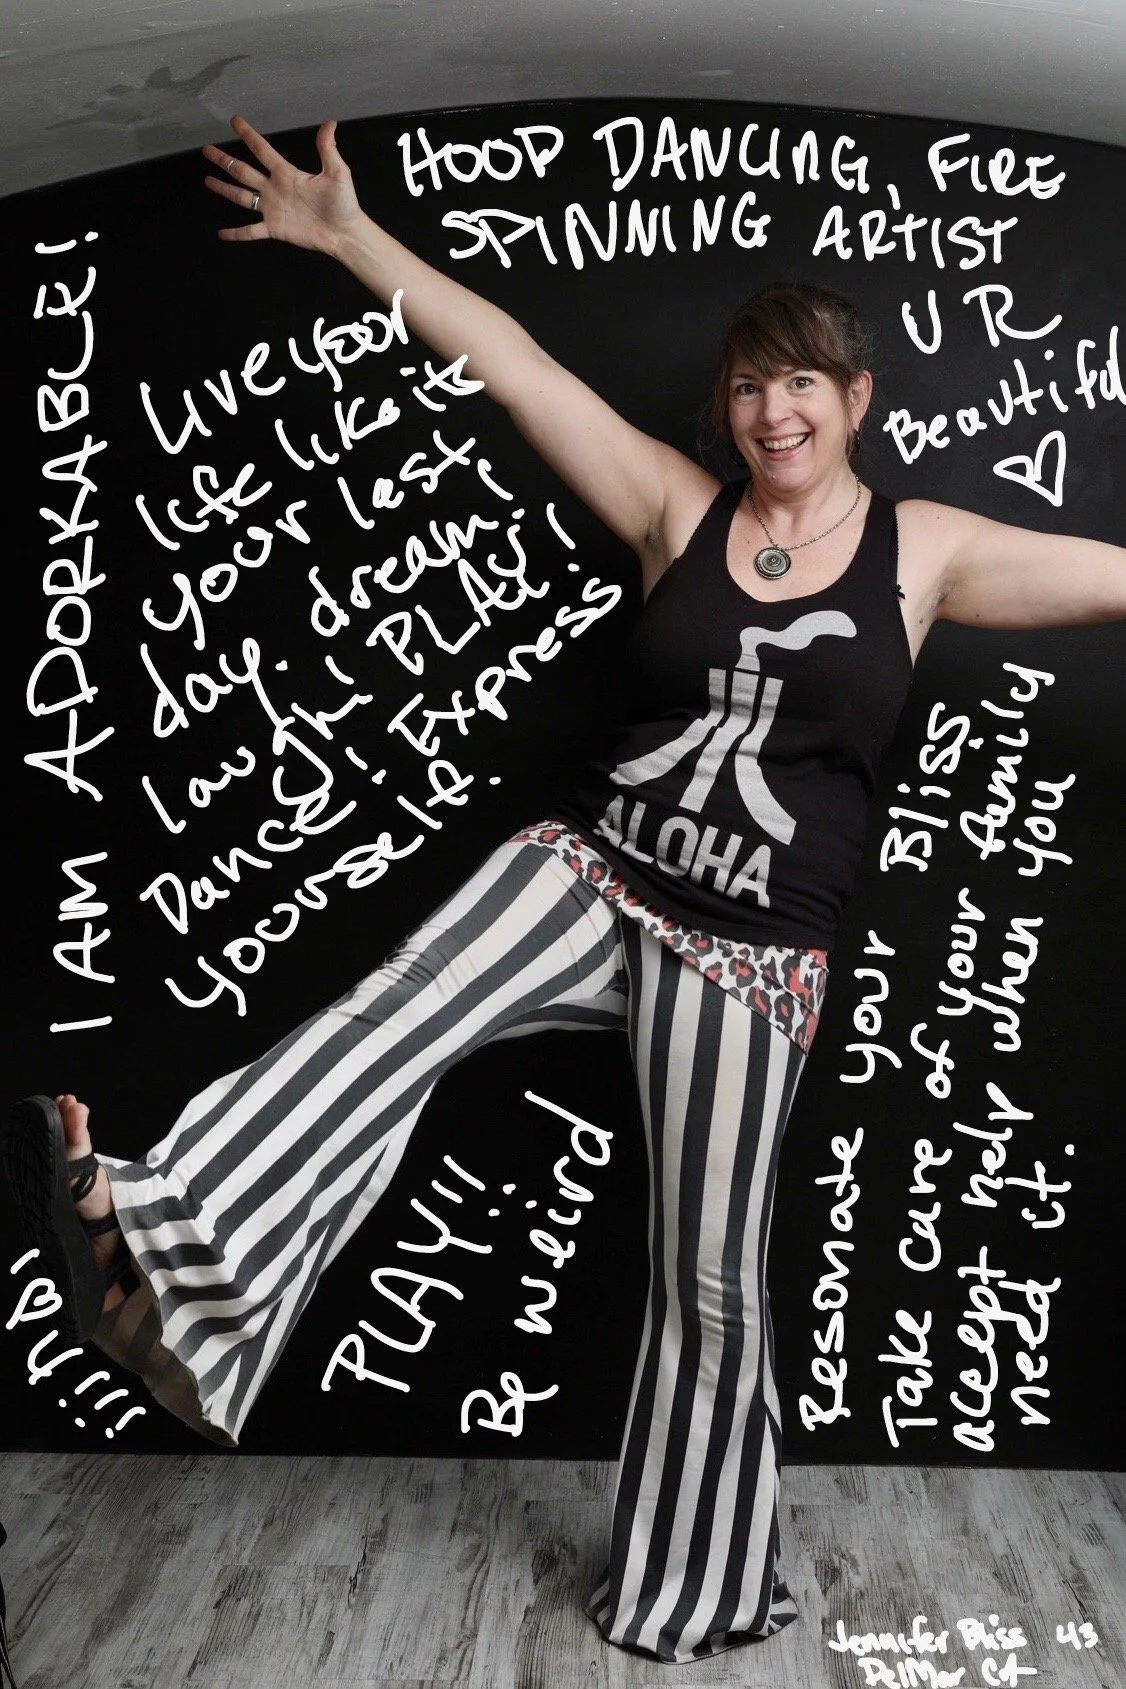 HOOP DANCING, FIRE
SPINNING ARTIST
U R
Beautiful
I AM ADORKABLE!
Live your
life like its
your last
day. dream!
laugh! PLAY!
Dance! Express
yourself.
ALOHA
Resonate your Bliss
Take care of your family
accept help when you
need it.
PLAY!!
Be weird
Jennifer Bliss 43
DelMar CA